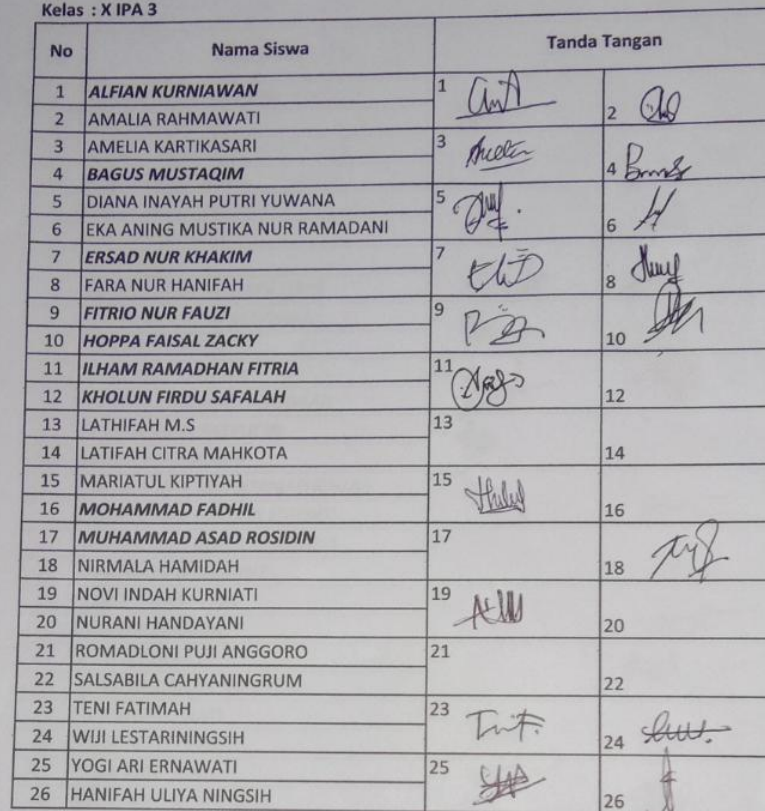 Kelas : X IPA 3
No Nama Siswa Tanda Tangan
1 ALFIAN KURNIAWAN 1
2 AMALIA RAHMAWATI 2
3 AMELIA KARTIKASARI 3
4 BAGUS MUSTAQIM 4
5 DIANA INAYAH PUTRI YUWANA 5
6 EKA ANING MUSTIKA NUR RAMADANI 6
7 ERSAD NUR KHAKIM 7
8 FARA NUR HANIFAH 8
9 FITRIO NUR FAUZI 9
10 HOPPA FAISAL ZACKY 10
11 ILHAM RAMADHAN FITRIA 11
12 KHOLUN FIRDU SAFALAH 12
13 LATHIFAH M.S 13
14 LATIFAH CITRA MAHKOTA 14
15 MARIATUL KIPTIYAH 15
16 MOHAMMAD FADHIL 16
17 MUHAMMAD ASAD ROSIDIN 17
18 NIRMALA HAMIDAH 18
19 NOVI INDAH KURNIATI 19
20 NURANI HANDAYANI 20
21 ROMADLONI PUJI ANGGORO 21
22 SALSABILA CAHYANINGRUM 22
23 TENI FATIMAH 23
24 WIJI LESTARININGSIH 24
25 YOGI ARI ERNAWATI 25
26 HANIFAH ULIYA NINGSIH 26